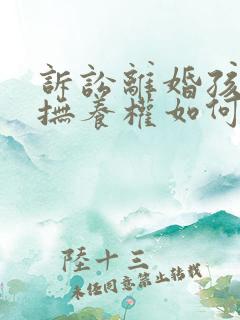 訴訟離婚孩
撫養權如何
陸十三
未經同意禁止轉載